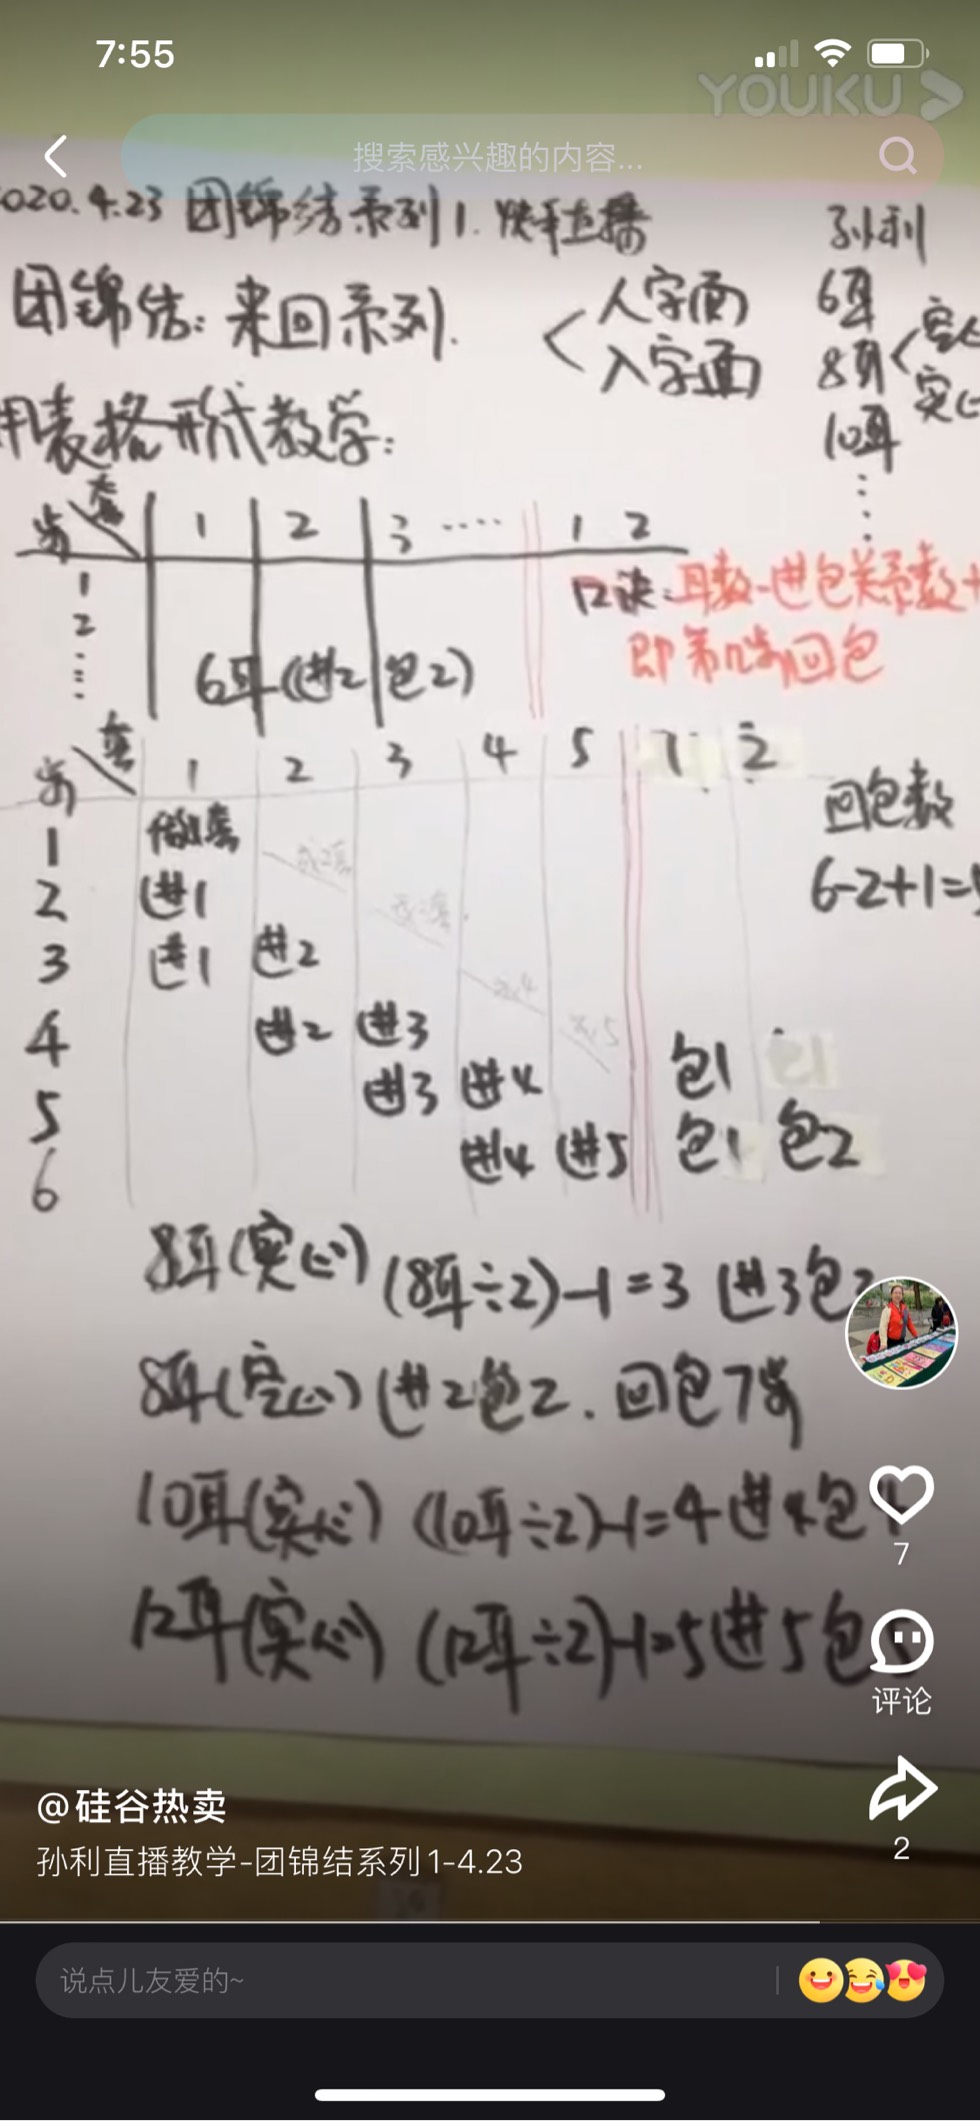 7:55
YOUKU
搜索感兴趣的内容...
2020.4.23 团锦结系列1. 快手直播
孙利
团锦结: 来回系列.
人字面
入字面
6耳
8耳
空心
实心
10耳
用表格形式教学:
步 套 1 2 3 .... 1 2
1
2
口诀: 耳数-进包关系数+
即第几步回包
6耳(进2包2)
步 套 1 2 3 4 5 1 2
回包数
6-2+1=5
1 做1套
2 进1
3 进1 进2
4 进2 进3
5 进3 进4 包1
6 进4 进5 包1 包2
8耳(实心) (8耳÷2)-1=3 进3包
8耳(空心)(进2包2. 回包7步
10耳(实心) (10耳÷2)-1=4 进4包4
12耳(实心) (12耳÷2)-1=5 进5包
7
评论
2
@硅谷热卖
孙利直播教学-团锦结系列1-4.23
说点儿友爱的~